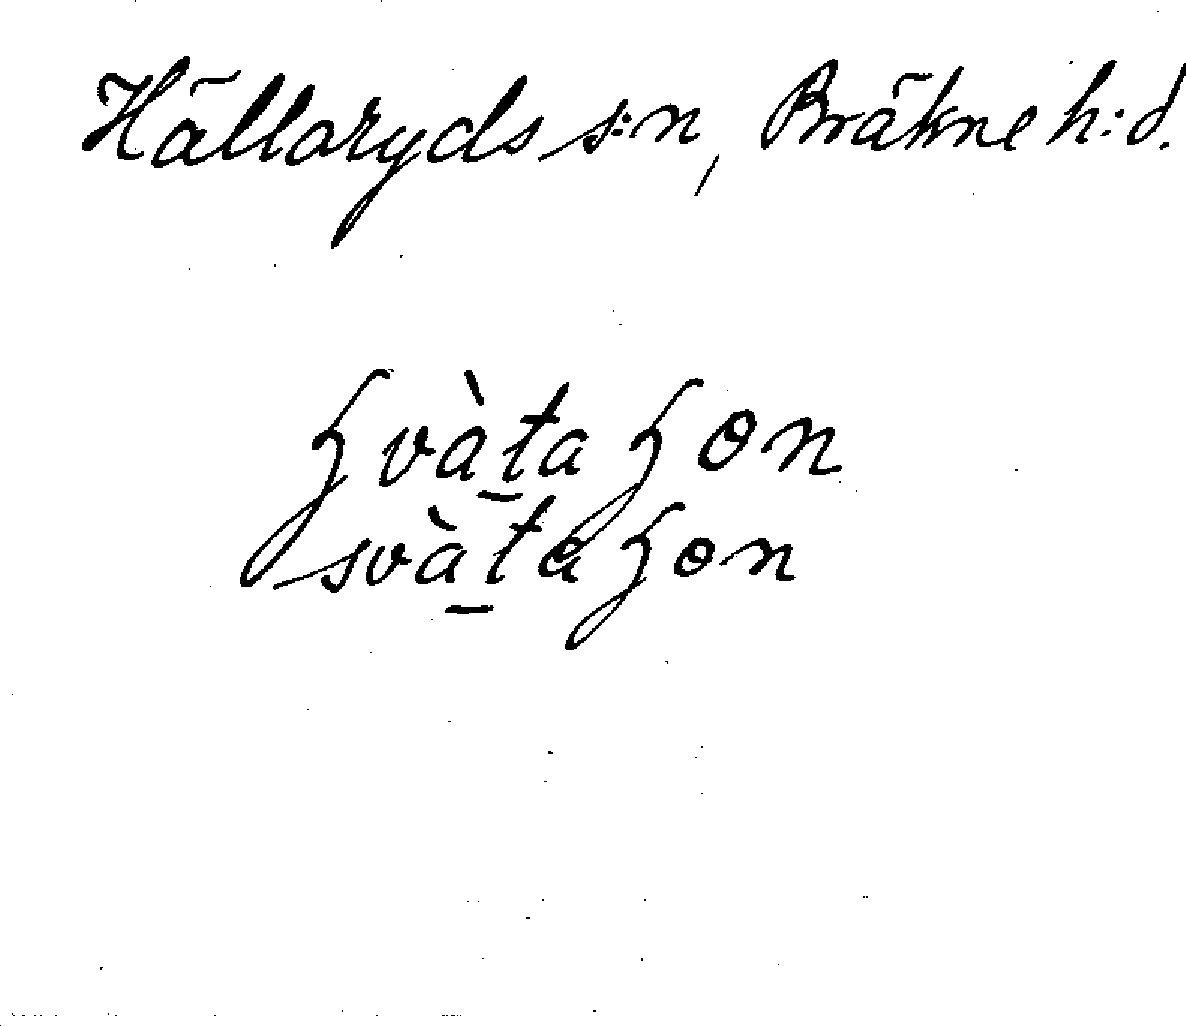 Hällaryds s:n, Bräkne h:d.
ʒvàta ʒon
svàta ʒon